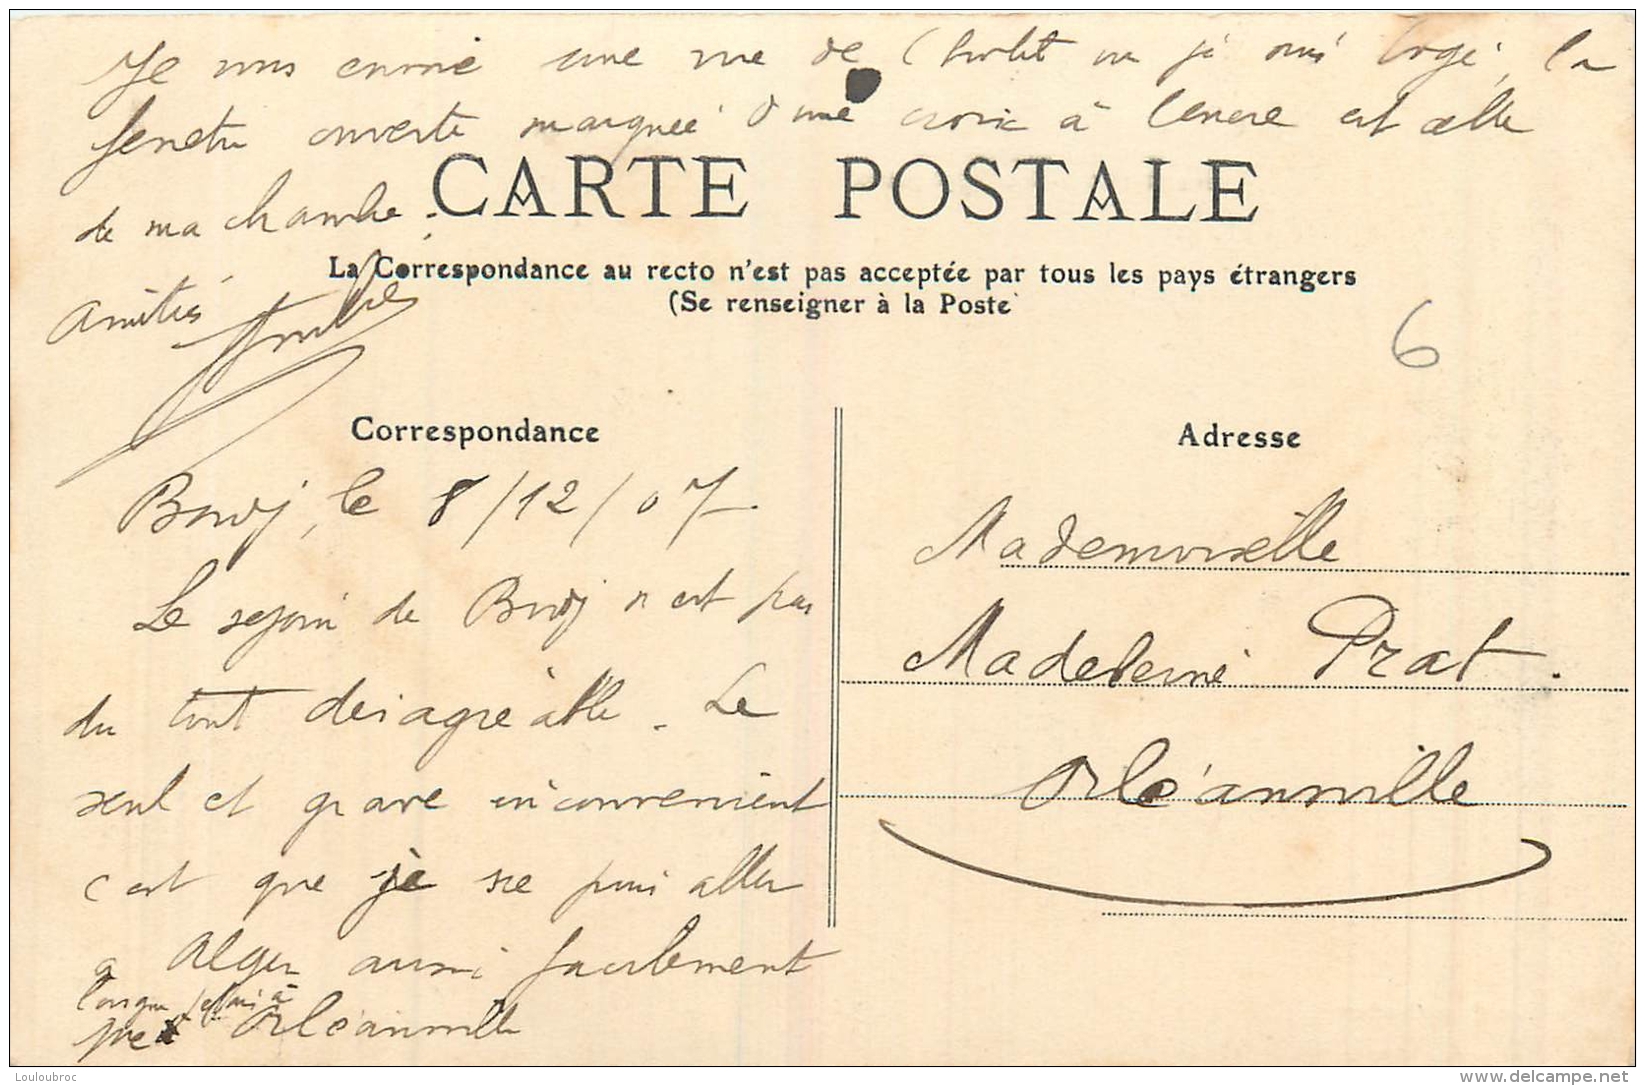 Je vous envoie une vue de l'hotel ou je suis logé, la
fenetre ouverte marquée d'une croix à l'encre est celle
de ma chambre.
CARTE POSTALE
La Correspondance au recto n'est pas acceptée par tous les pays étrangers
(Se renseigner à la Poste
Amitiés
6
Correspondance
le 8/12/07.
Le sejour de n'est pas
du tout désagréable. Le
seul et grave inconvenient
c'est que je ne puis aller
a Alger aussi facilement
lorsque j'etais à
que Orléanville
Adresse
Mademoiselle
Madeleine Prat.
Orléanville
Louloubroc
www.delcampe.net